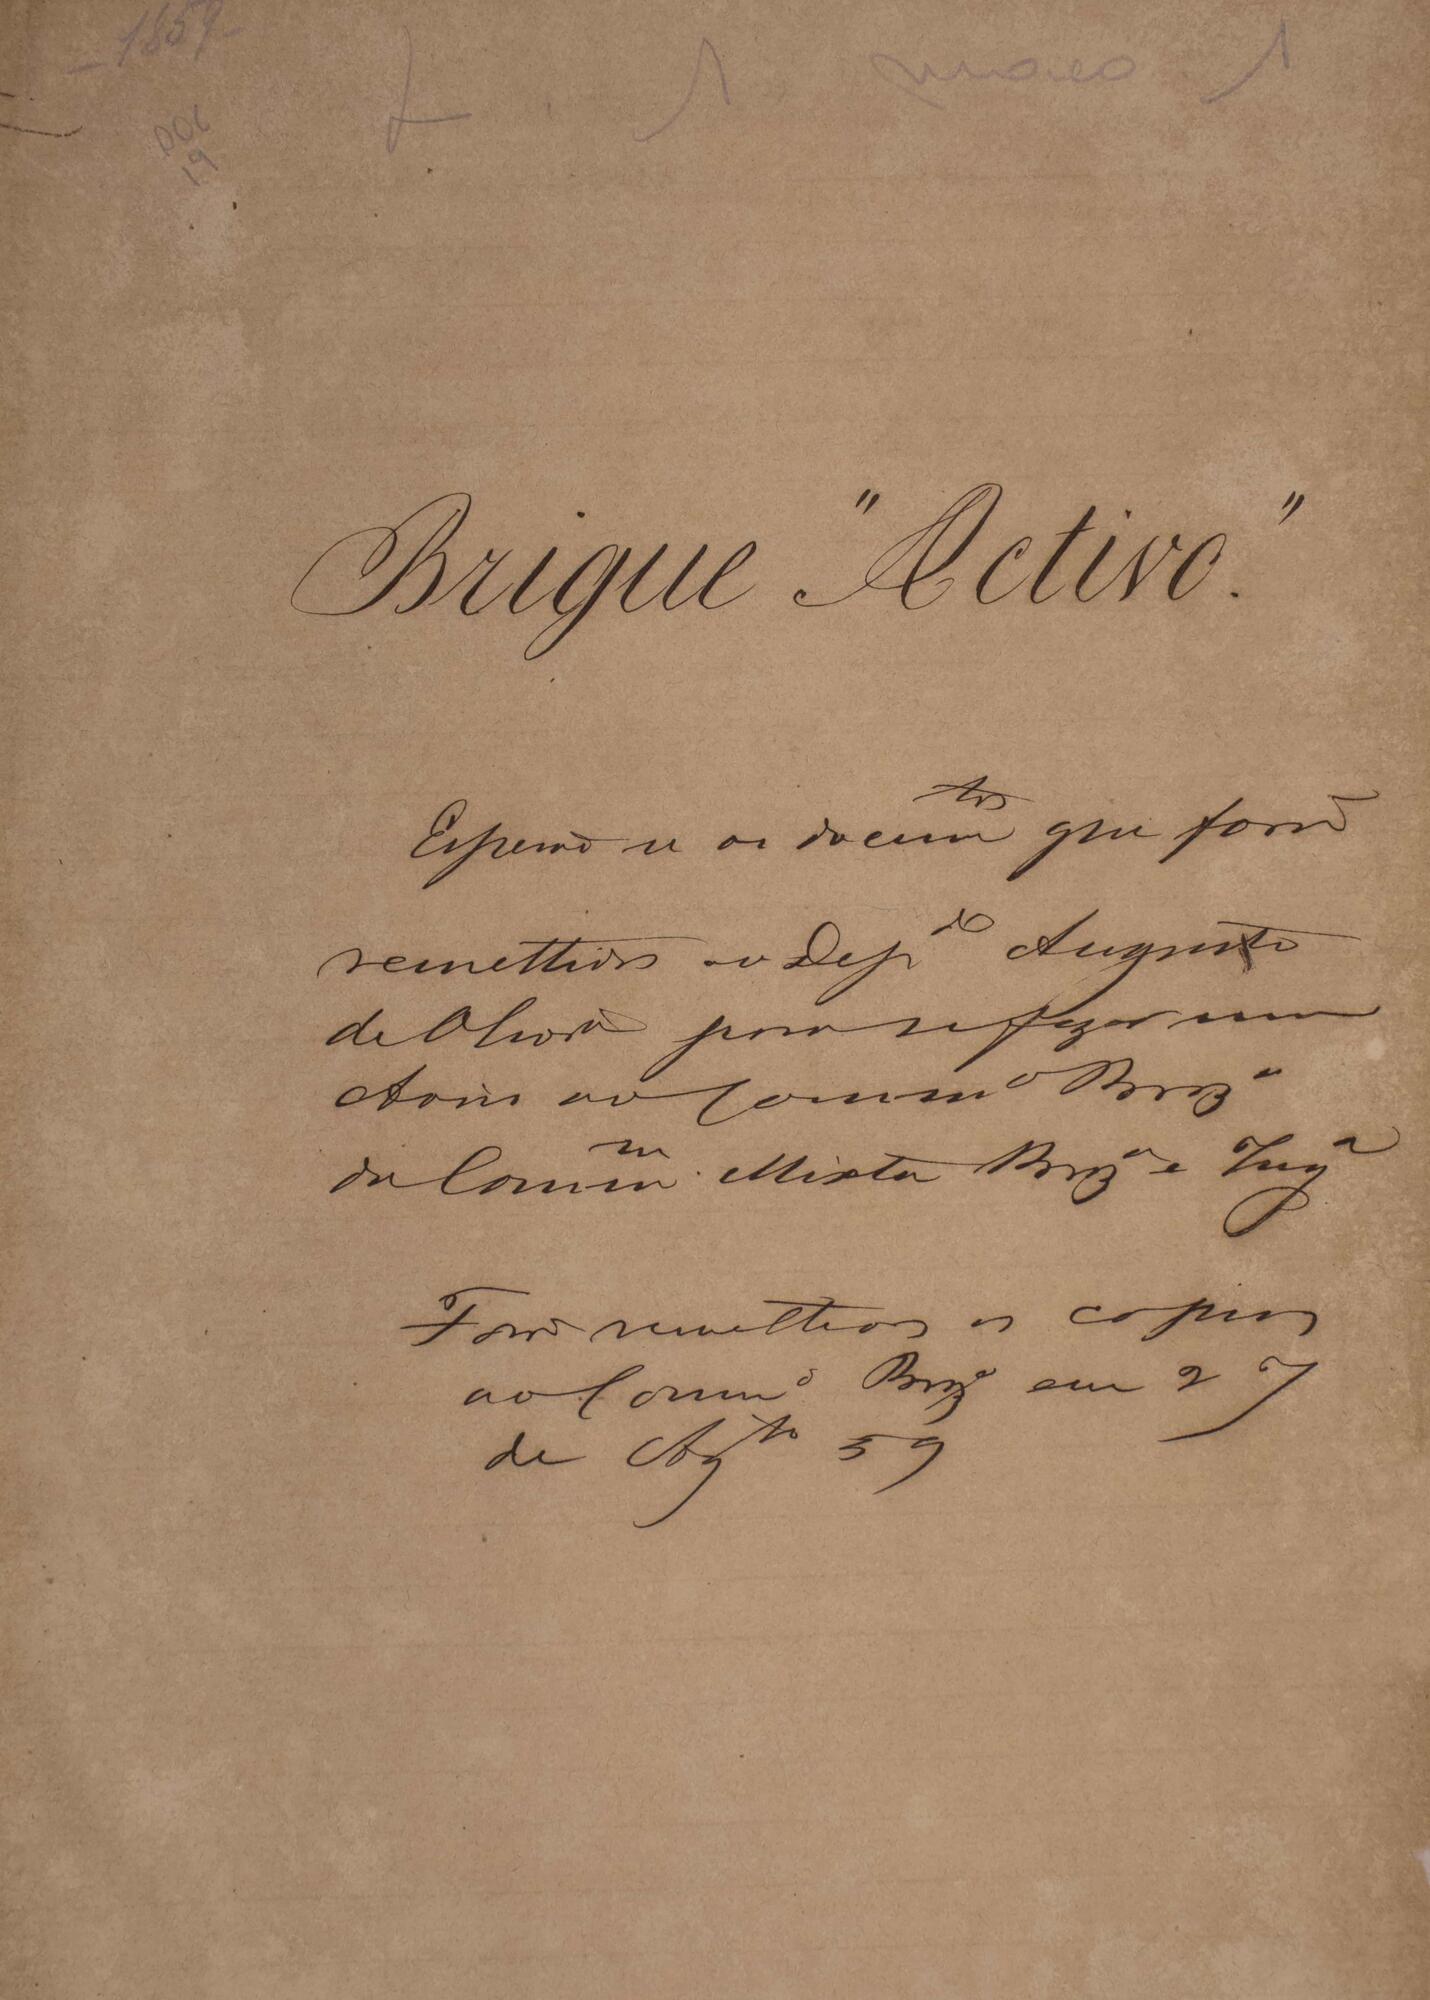 - 1859 -
DOC
19
L 1 março 1
Brigue "Activo."
Esperão se os docum.tos que forão
remettidos ao Dep.do Augusto
de Olivra para se fazer um
Aviso ao Comm.o Braz.o
da Comm.m Mixta Braz.a e Ing.a
Forão remettidas as copias
ao Comm.o Braz.o em 27
de Ag.to 59